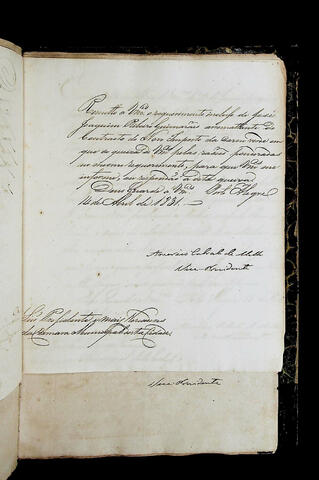 Remetto a Vmces o requerimento incluso de José
Joaquim Ribeiro Guimarães arrematante do
Contracto de Imposto da Carne verde em
que se queixa de Vmces pelas razões ponderadas
no mesmo requerimento, para que Vmces me
informe, em resposta a esta queixa.
Deus Guarde a Vmces
14 de Abril de 1831.
Cabral de Mello
Vice Presidente
Snrs Presidente, e mais Vereadores
da Camara Municipal desta Cidade
Vice Presidente